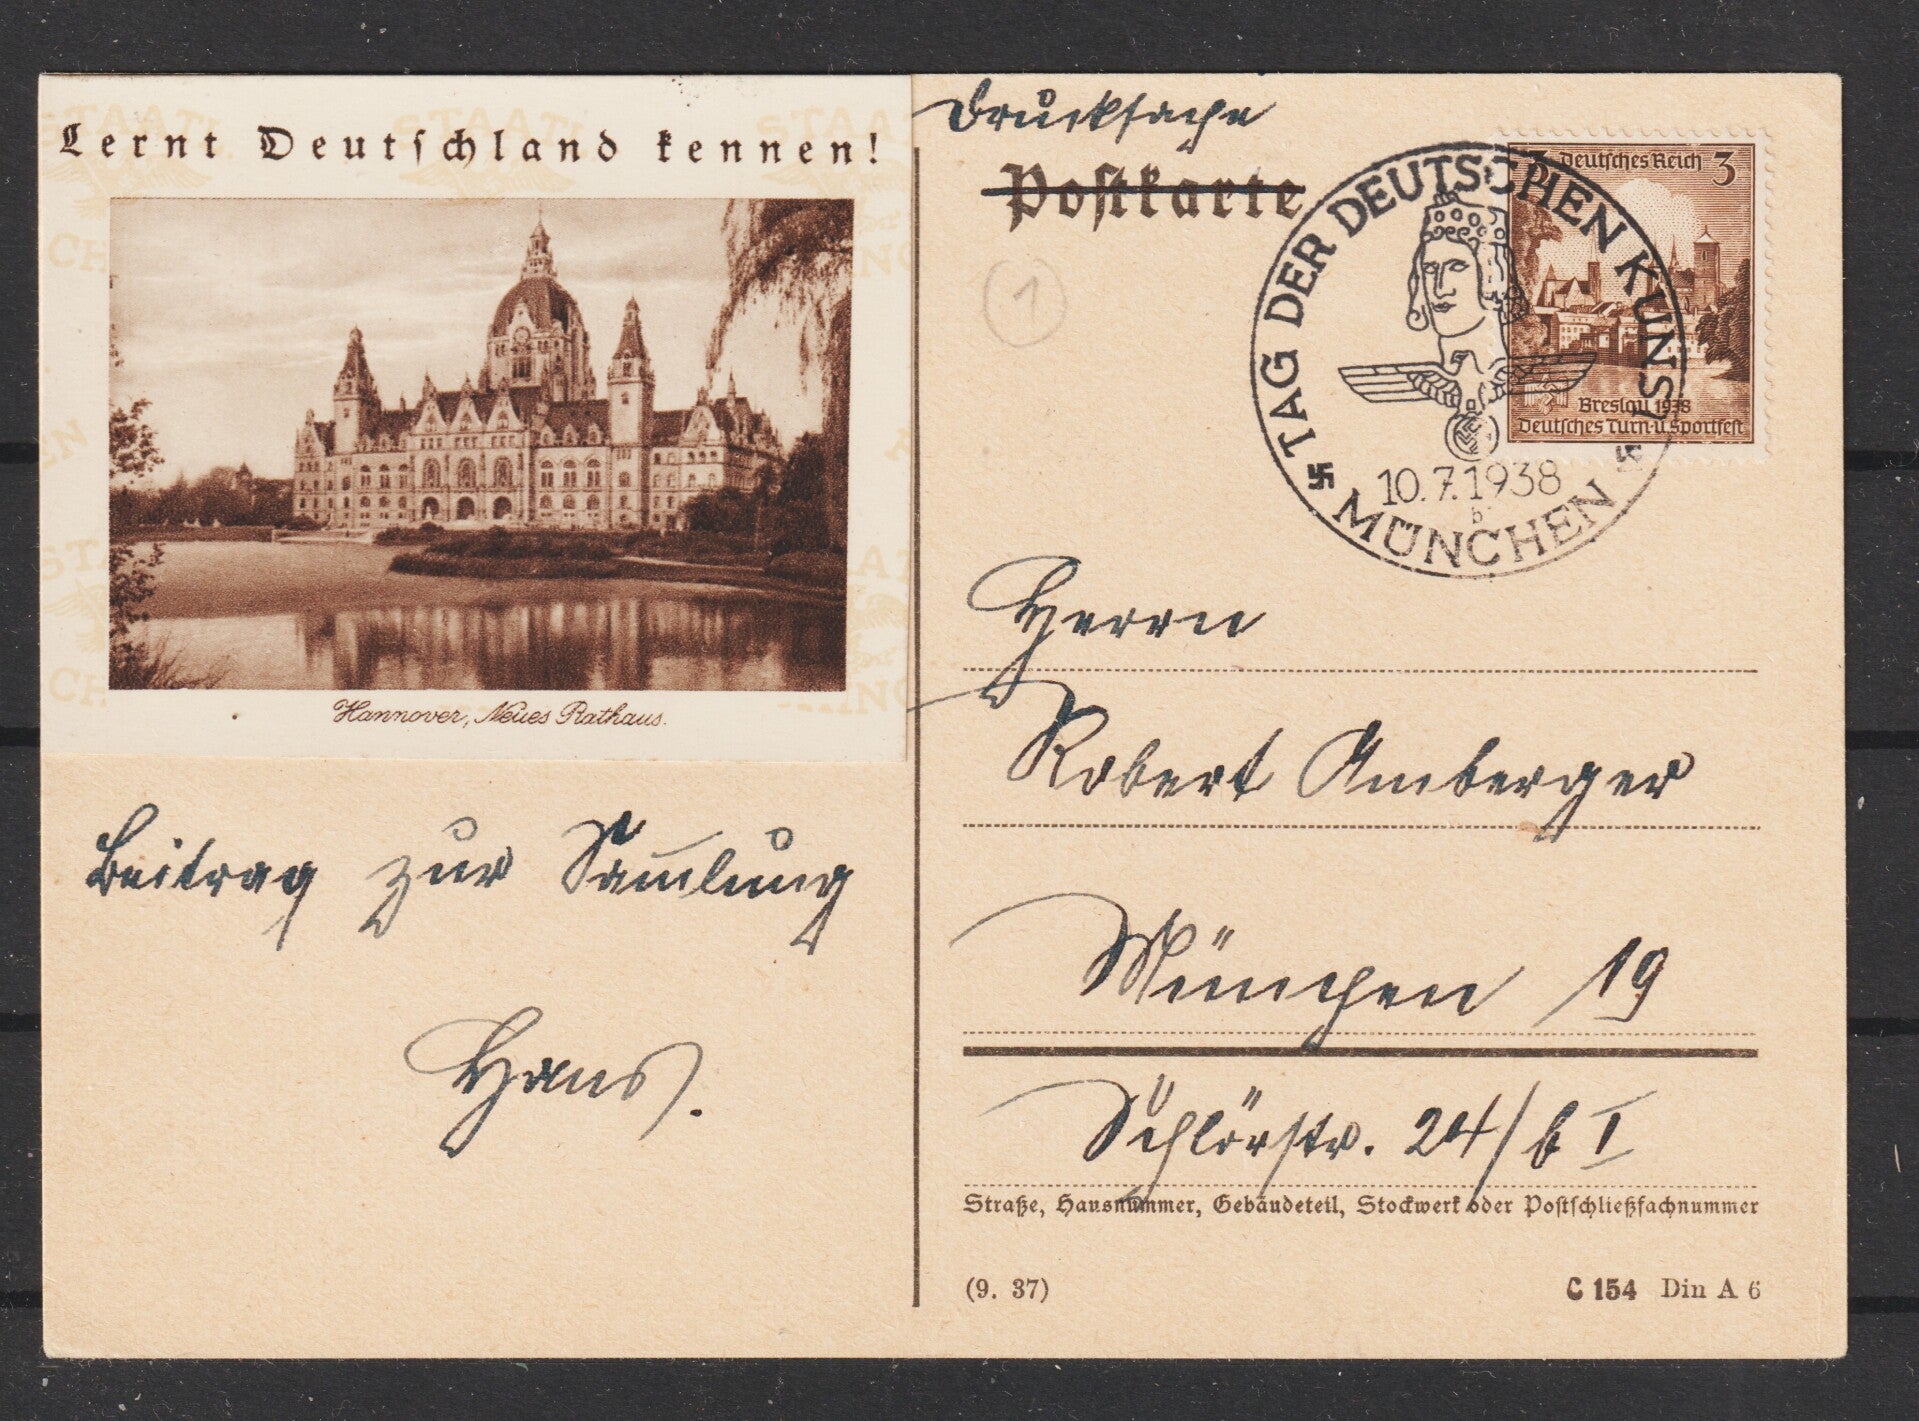 Lernt Deutschland kennen!
Hannover, Neues Rathaus.
Beitrag zur Sam̅lung
Hans.
Drucksache
Postkarte
1
TAG DER DEUTSCHEN KUNST
10.7.1938
b
MÜNCHEN
3 Deutsches Reich 3
Breslau 1938
Deutsches Turn-u. Sportfest
Herrn
Robert Amberger
München 19
Schlörstr. 24/b I
Straße, Hausnummer, Gebäudeteil, Stockwerk oder Postschließfachnummer
(9. 37)
C 154 Din A 6